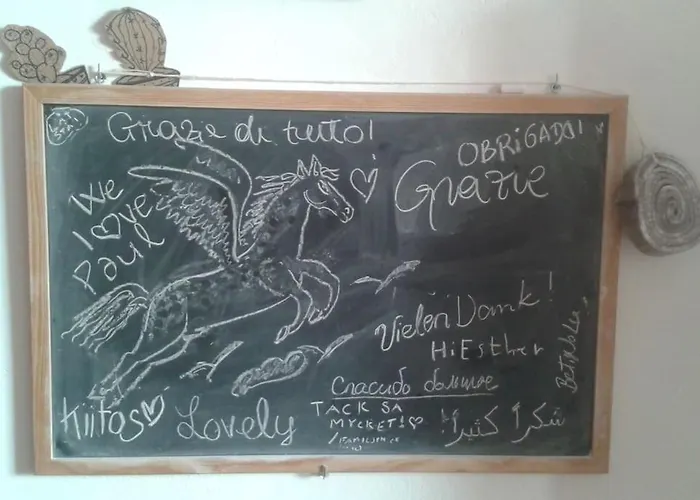 Grazie di tutto!
OBRiGADO!
Grazie
We
I ♡ ve
Paul
Vielen Dank!
Hi Esther
Спасибо большое
Kiitos ♡
Lovely
TACK SA
MYCKET! ♡
شكراً كثيراً!